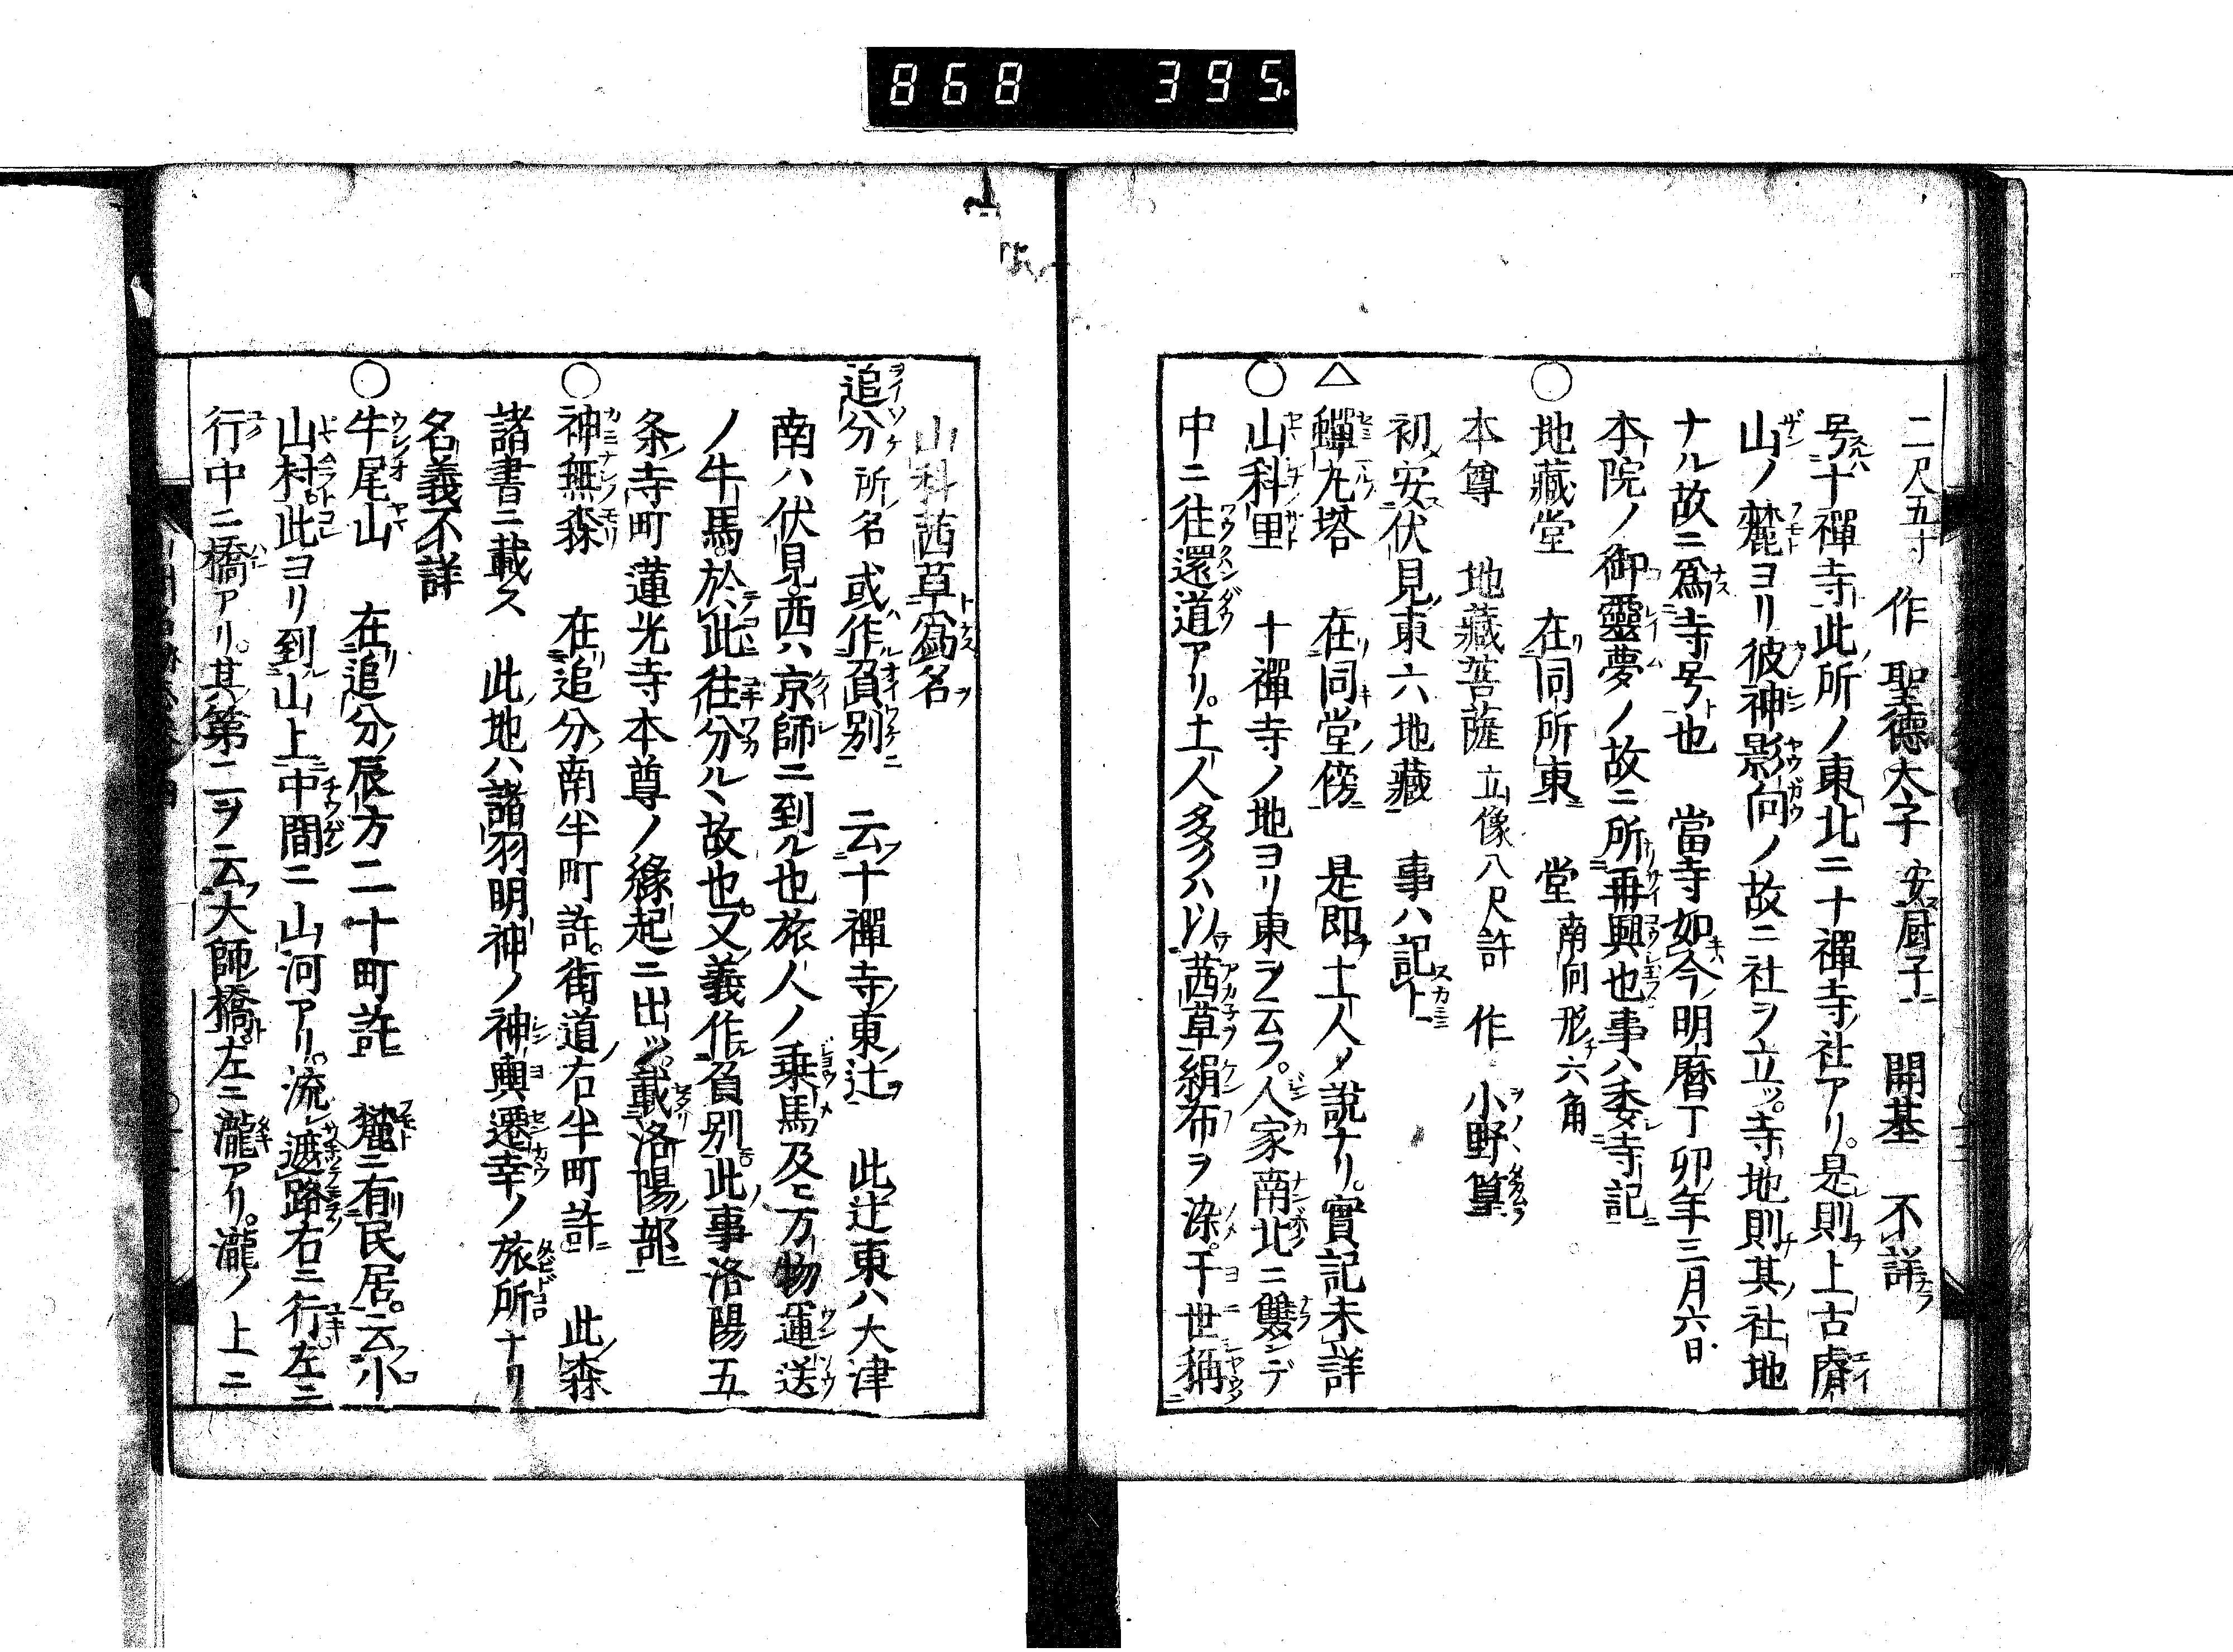 868 395.
二尺五寸 作 聖德太子 安厨子 開基 不詳
号十禪寺此所ノ東北ニ十禪寺社アリ是則上古叡
山ノ麓ヨリ彼神影向ノ故ニ社ヲ立ツ寺地則其社地
ナル故ニ爲寺号也 當寺如今明曆丁卯年三月六日
本院ノ御靈夢ノ故ニ所再興也事ハ委寺記
○地藏堂 在同所東 堂 南向形六角
本尊 地藏菩薩 立像八尺許 作 小野篁
初安伏見東六地藏 事ハ記上
△蟬丸塔 在同堂傍 是即土人ノ說ナリ實記未詳
○山科里 十禪寺ノ地ヨリ東ヲ云フ人家南北ニ雙ンデ
中ニ往還道アリ土人多クハ以茜草絹布ヲ染于世稱
山科茜草爲名
追分 所名或作負別 云十禪寺東辻 此辻東ハ大津
南ハ伏見西ハ京師ニ到ル也旅人ノ乗馬及ヒ万物運送
ノ牛馬於此往分ルヽ故也又義作負別此事洛陽五
条寺町蓮光寺本尊ノ緣起ニ出ヅ載洛陽部
○神無森 在追分南半町許街道右半町許 此森
諸書ニ載ス 此地ハ諸羽明神ノ神輿遷幸ノ旅所ナリ
名義不詳
○牛尾山 在追分辰方二十町許 麓ニ有民居云小
山村此ヨリ到山上中間ニ山河アリ流遮路右ニ行左ニ
行中ニ橋アリ其第二ヲ云大師橋左ニ瀧アリ瀧ノ上ニ